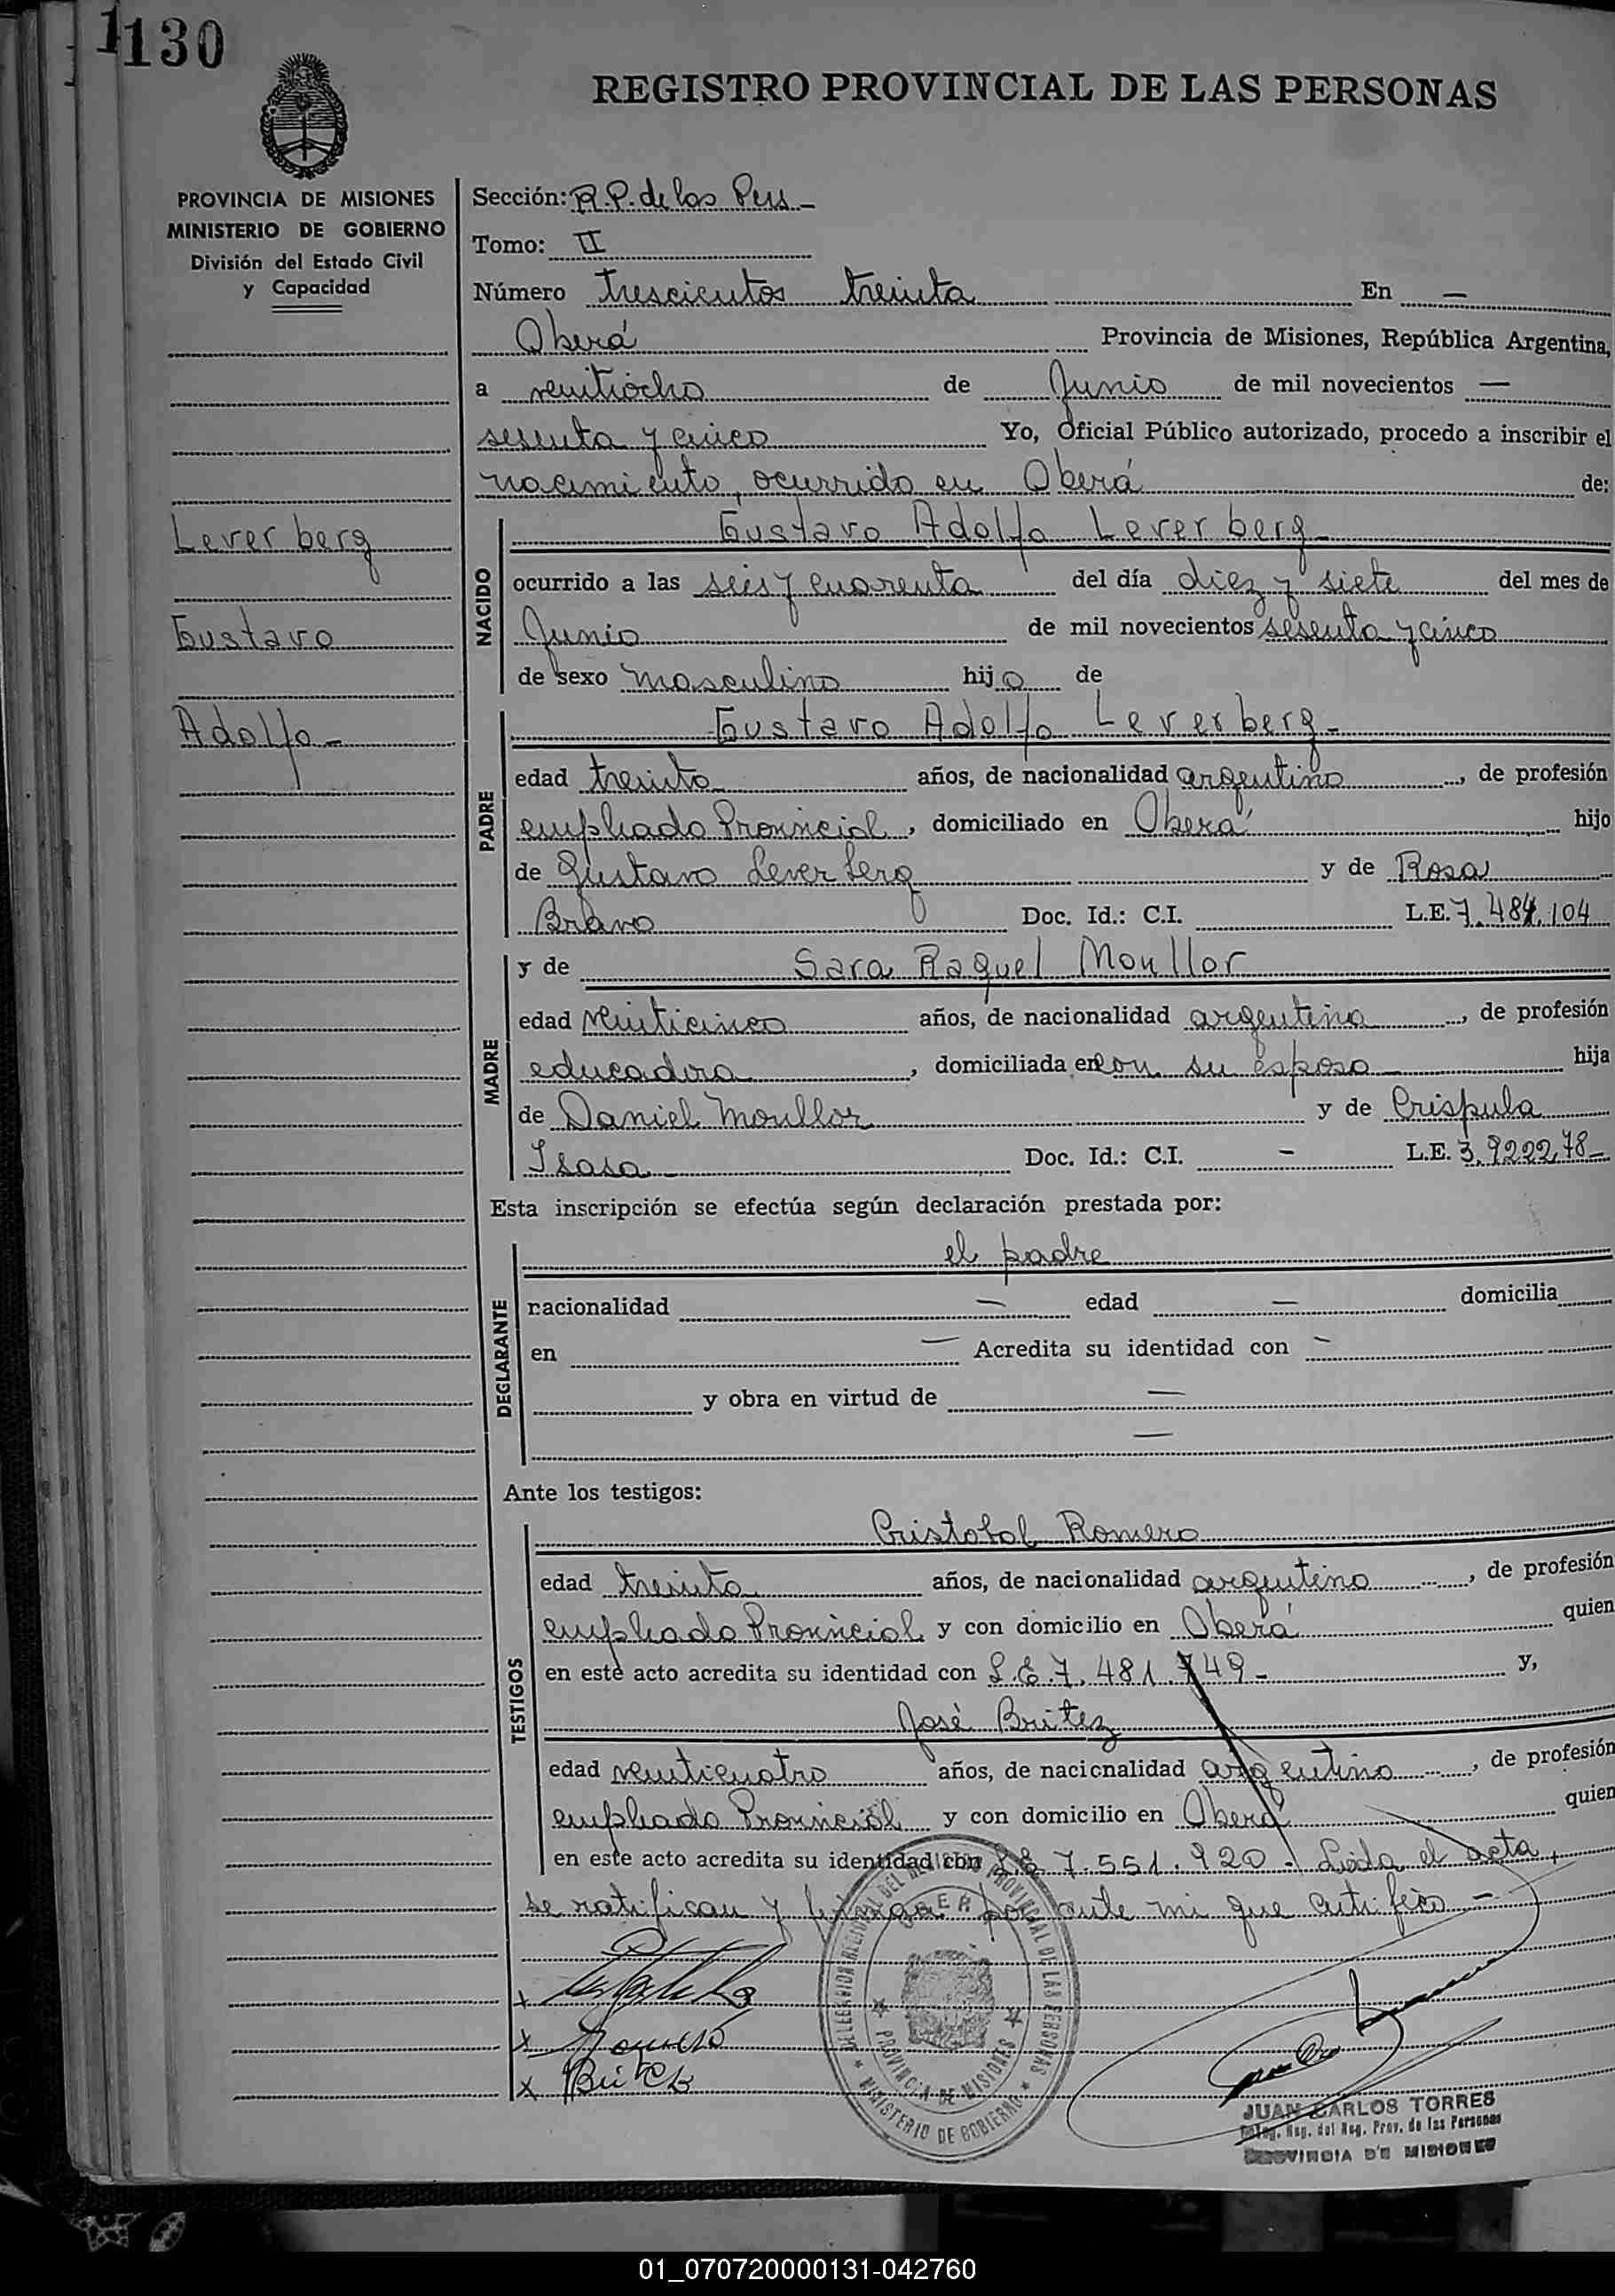 1130
REGISTRO PROVINCIAL DE LAS PERSONAS
PROVINCIA DE MISIONES
MINISTERIO DE GOBIERNO
División del Estado Civil
y Capacidad
Lever berg
Gustavo
Adolfo -
Sección: R.P. de las Pers -
Tomo: II
Número Trescientos treinta En —
Oberá Provincia de Misiones, República Argentina,
a veintiocho de Junio de mil novecientos —
sesenta y cinco Yo, Oficial Público autorizado, procedo a inscribir el
nacimiento, ocurrido en Oberá de:
NACIDO
Gustavo Adolfo Lever berg -
ocurrido a las seis y cuarenta del día diez y siete del mes de
Junio de mil novecientos sesenta y cinco
de sexo masculino hijo de
PADRE
Gustavo Adolfo Lever berg -
edad treinta años, de nacionalidad argentino, de profesión
empleado Provincial, domiciliado en Oberá hijo
de Gustavo Lever berg y de Rosa
Bravo Doc. Id.: C.I. L.E. 7.484.104
MADRE
y de Sara Raquel Moullor
edad veinticinco años, de nacionalidad argentina, de profesión
educadora, domiciliada en con su esposo hija
de Daniel Moullor y de Crispula
Isasa Doc. Id.: C.I. - L.E. 3.922278 -
Esta inscripción se efectúa según declaración prestada por:
DECLARANTE
el padre
nacionalidad — edad — domicilia
en — Acredita su identidad con -
y obra en virtud de —
—
Ante los testigos:
TESTIGOS
Cristobal Romero
edad treinta años, de nacionalidad argentino, de profesión
empleado Provincial y con domicilio en Oberá quien
en este acto acredita su identidad con L.E. 7.481.749 - y,
José Britez
edad veinticuatro años, de nacionalidad argentino, de profesión
empleado Provincial y con domicilio en Oberá quien
en este acto acredita su identidad con L.E. 7.551.920 - Leída el acta,
se ratifican y firman por ante mi que certifico -
x
x Romero
x Britez
DELEGACION REGIONAL DEL REGISTRO PROVINCIAL DE LAS PERSONAS
OBERA
PROVINCIA DE MISIONES
MINISTERIO DE GOBIERNO
JUAN CARLOS TORRES
Deleg. Reg. del Reg. Prov. de las Personas
PROVINCIA DE MISIONES
01_070720000131-042760